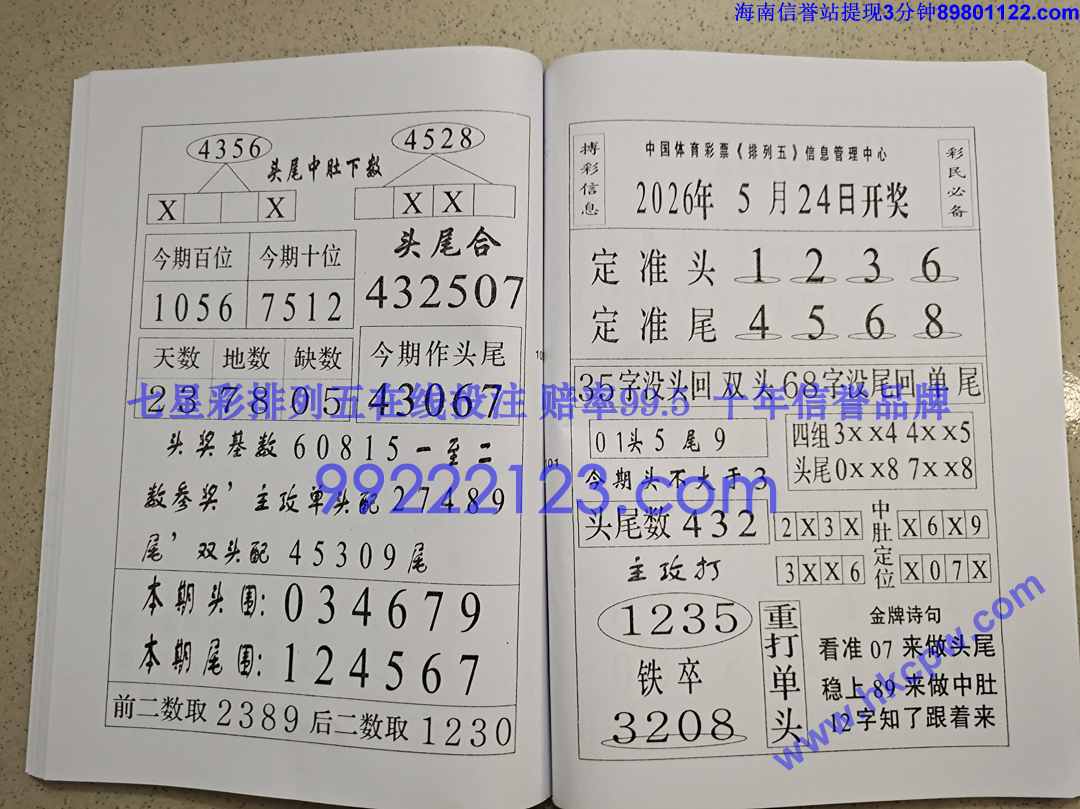 海南信誉站提现3分钟89801122.com
4356
4528
头尾中肚下数
X X
X X
今期百位 今期十位
1056 7512
头尾合
432507
天数 地数 缺数
237805
今期作头尾
43067
头奖基数60815一至二
数参奖’主攻单头配27489
尾’双头配45309尾
本期头围:034679
本期尾围:124567
前二数取2389后二数取1230
搏彩信息
中国体育彩票《排列五》信息管理中心
2026年 5月24日开奖
彩民必备
定准头 1 2 3 6
定准尾 4 5 6 8
35字没头回双头68字没尾回单尾
01头5尾9
今期头不大于3
四组3xx4 4xx5
头尾0xx8 7xx8
头尾数432
2X3X
中肚定位
X6X9
主攻打
3XX6
X07X
1235
铁卒
3208
重打单头
金牌诗句
看准07来做头尾
稳上89来做中肚
12字知了跟着来
七星彩排列五在线投注 赔率99.5 十年信誉品牌
99222123.com
www.hkcpw.com
101